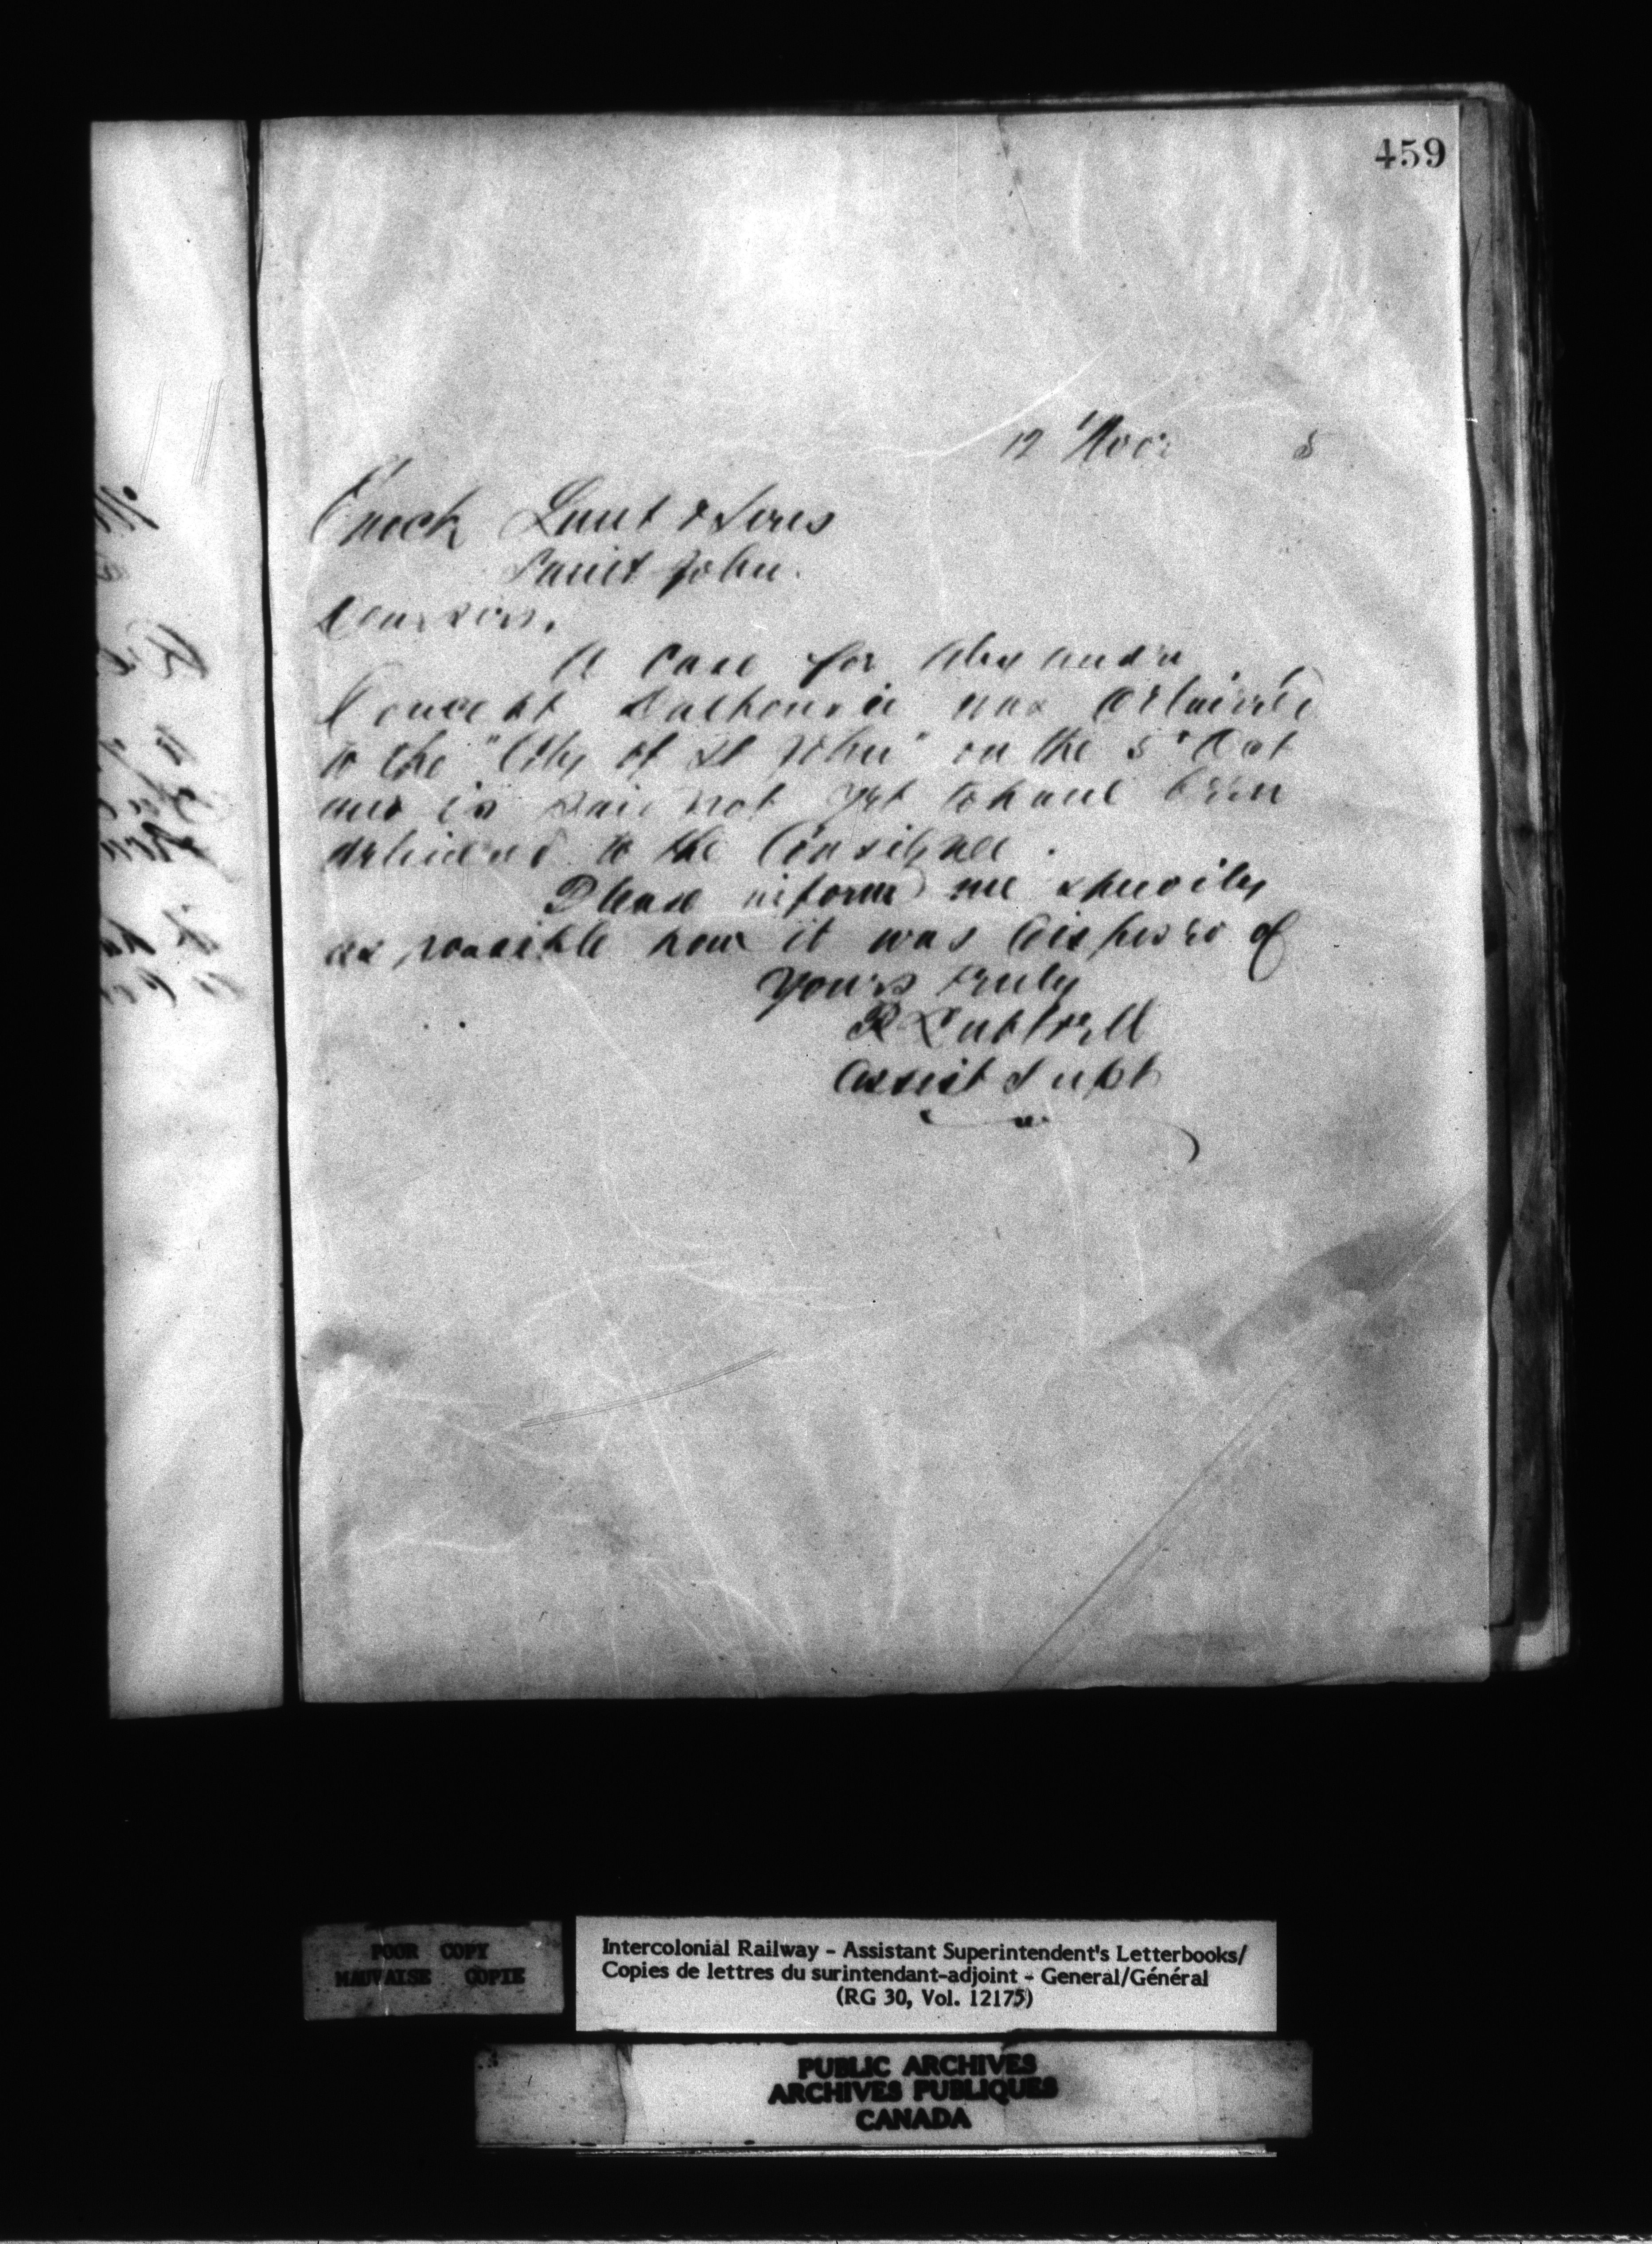 459
12 Novr 5
Enoch Lunt & Sons
Saint John.
Dear Sirs,
A Case for Alexander
Dalhousie was delivered
to the "City of St John" on the 5" Oct
and is said not yet to have been
delivered to the Consignee.
Please inform me speedily
as possible how it was disposed of
Yours truly
R Luttrell
Assist Supt
POOR COPY
MAUVAISE COPIE
Intercolonial Railway - Assistant Superintendent's Letterbooks/
Copies de lettres du surintendant-adjoint - General/Général
(RG 30, Vol. 12175)
PUBLIC ARCHIVES
ARCHIVES PUBLIQUES
CANADA